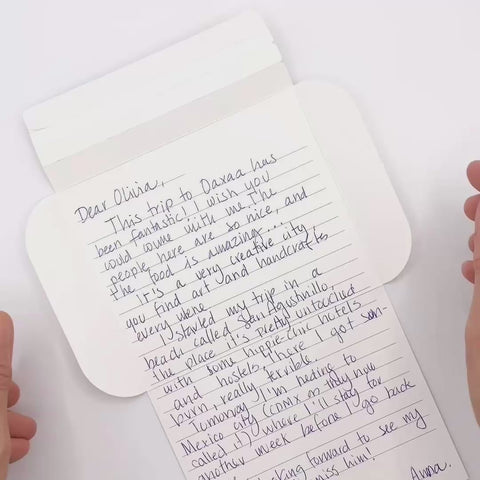 Dear Olivia,
This trip to Oaxaa has
been fantastic! I wish you
could come with me. The
people here are so nice, and
the food is amazing...
It's a very creative city
you find art and handcrafts
every were.
I started my trip in a
beach called San Agustinillo,
the place it's pretty untouched
with some hippie-chic hotels
and hostels, there I got sun-
burn, really terrible.
Tomorroy I'm heding to
Mexico city (CDMX as they now
called it) where i'll stay for
another week before I go back
looking forward to see my
miss him!
Anna.